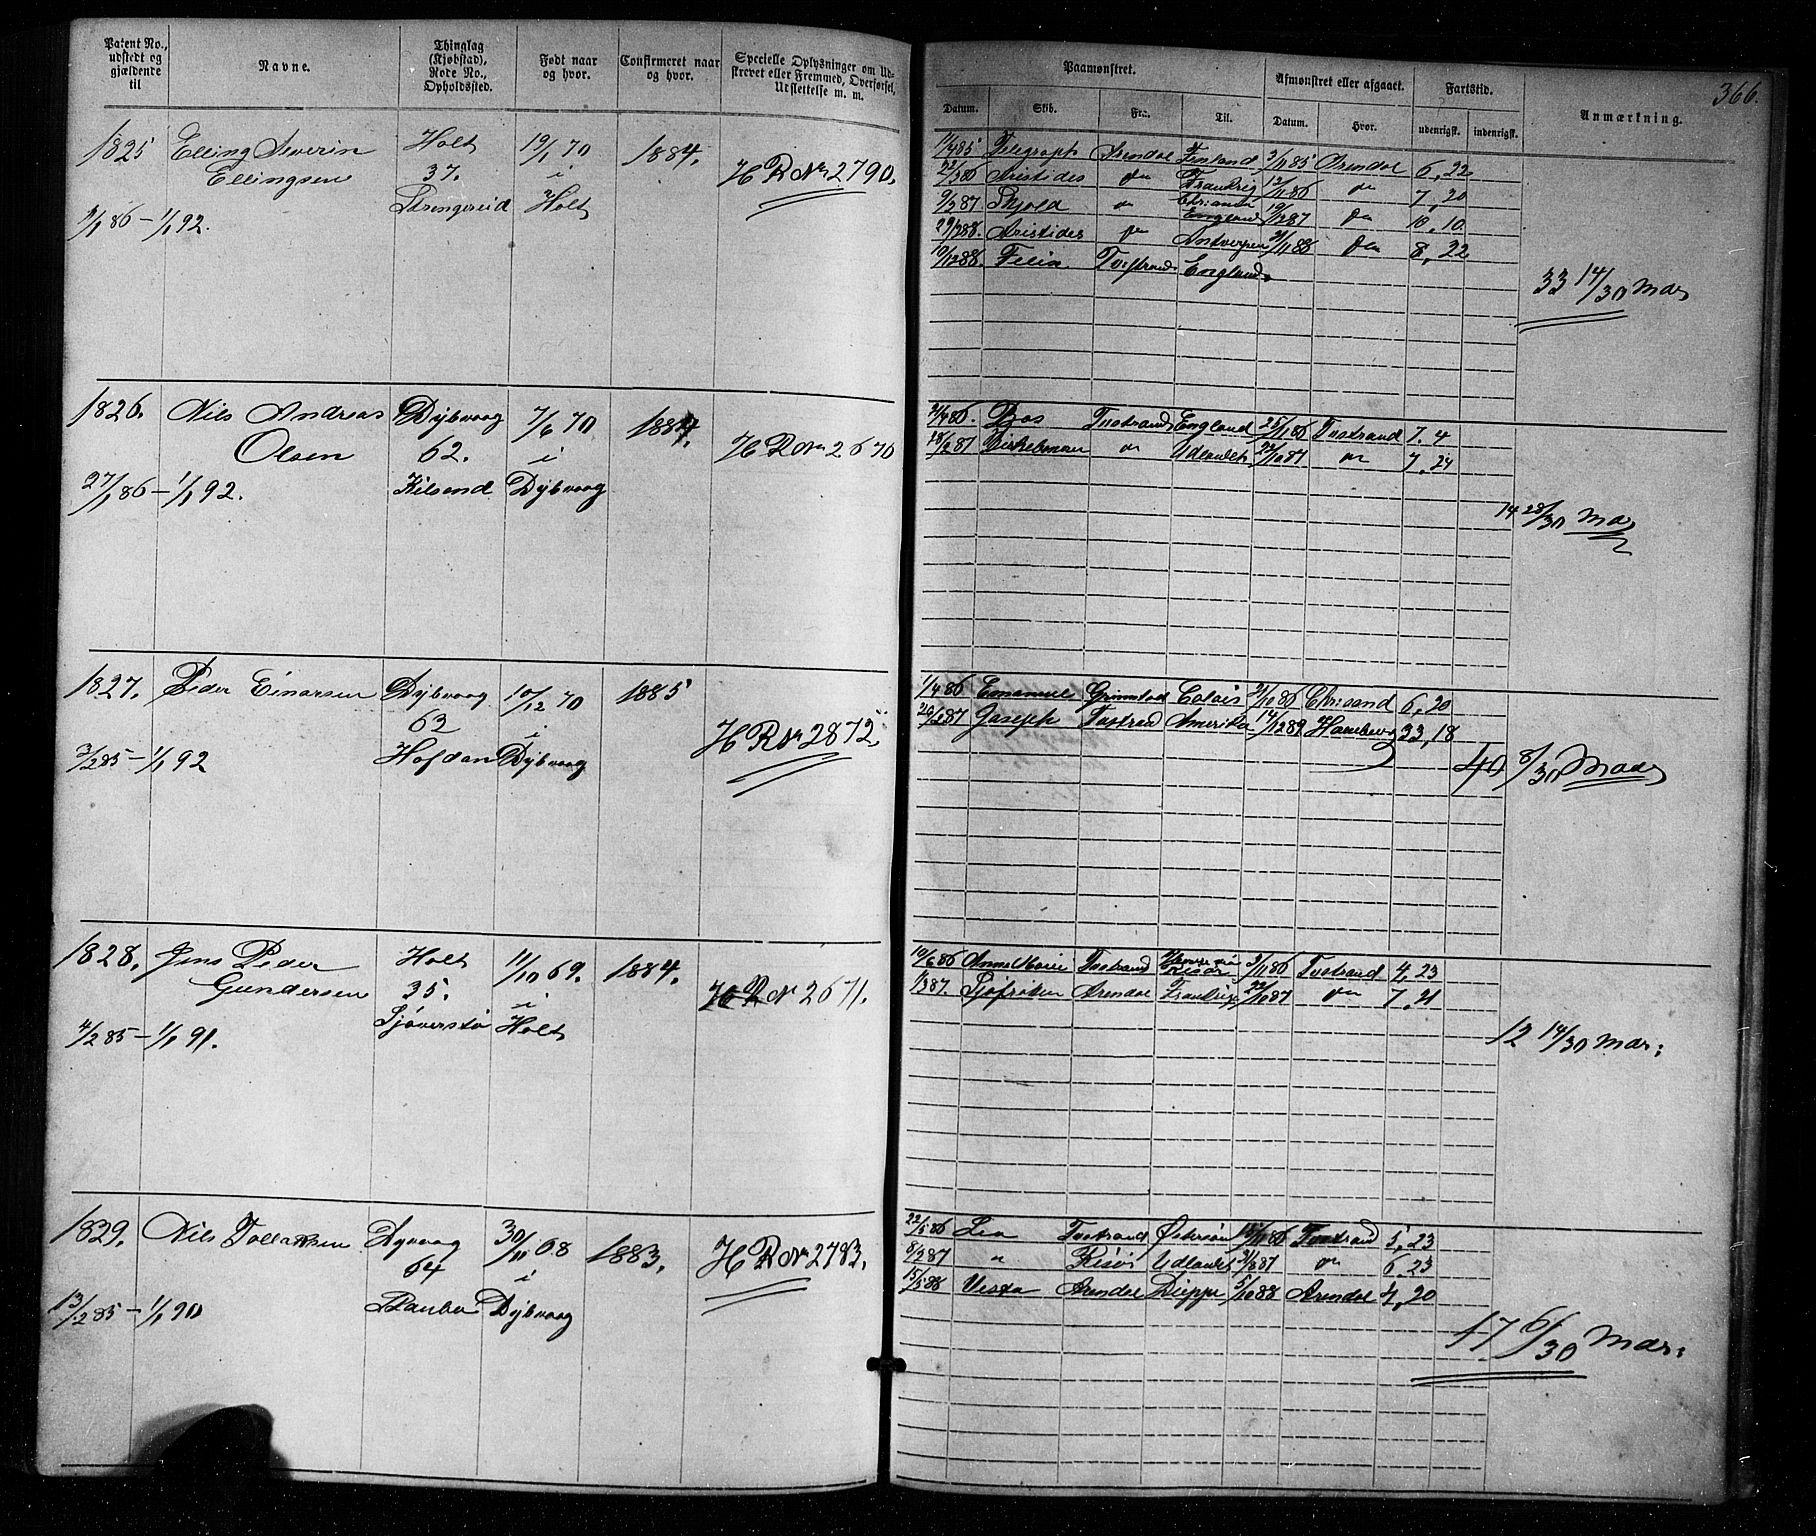 366.
Patent No., udstedt og gjældende til
Navne.
Thinglag (Kjøbstad), Rode No., Opholdssted.
Født naar og hvor.
Confirmeret naar og hvor.
Specielle Oplysninger om Udskrevet eller Fremmed, Overførsel, Udslettelse m. m.
Paamønstret.
Datum.
Skib.
Fra.
Til.
Afmønstret eller afgaaet.
Datum.
Hvor.
Fartstid.
udenrigsk.
indenrigsk.
Anmærkning.
1825 Elling Severin Holt 19/1 70 1884. H R Nr 2790.
Ellingsen 37. i
Holt
2/1 86 – 1/1 92.
11/4 85 Telegraph Arendal Finland 3/11 85 Arendal 6, 22
22/3 86 Aristides do Frankrig 12/11 86 do 7, 20
9/2 87 Skjold do England 19/12 87 do 10. 10
29/2 88. Aristides do Antverpen 21/11 88 do 8, 22
10/12 88. Felix Tvestrand England
33 14/30 Mdr
1826. Nils Andreas Dybvaag 7/6 70 1884. H R Nr 2670
Olsen 62. i
27/1 86 – 1/1 92. Kilsund Dybvaag
21/4 86. Bos Tvestrand England 25/11 86 Tvestrand 7. 4
28/2 87 do Udlandet 22/10 87 do 7, 24
14 28/30 Md
1827. Peder Einarsen Dybvaag 10/12 70 1885 H R Nr 2872.
63 i
3/2 85 – 1/1 92 Dybvaag
1/4 86 Emanuel Grimstad Calais 21/10 86 Chr:sand 6, 20
26/2 87 Joseph Tvestrand Amerika 14/12 89 Hamburg 33, 18
40 8/30 Mdr
1828. Jens Peder Holt 11/10 69. 1884. H R Nr 2671.
Gundersen 35. i
4/2 85 – 1/1 91. Holt
10/6 86 Anne Marie Tvestrand 3/11 86 Tvestrand 4, 23
1/3 87. Arendal Frankrige 22/10 87 do 7, 21
12 14/30 Mdr:
1829. Nils Tallaksen Dyvaag 30/11 68 1883. H R Nr 2783.
64 i
13/2 85 – 1/1 90 Dybvaag
22/5 86 Lea Tvestrand Østersøen 15/11 86 Tvestrand 5, 23
8/2 87 " Risør Udlandet 31/8 87 do 6, 23
15/5 88 Vesta Arendal Dieppe 5/10 88 Arendal 4, 20
17 6/30 Mdr: